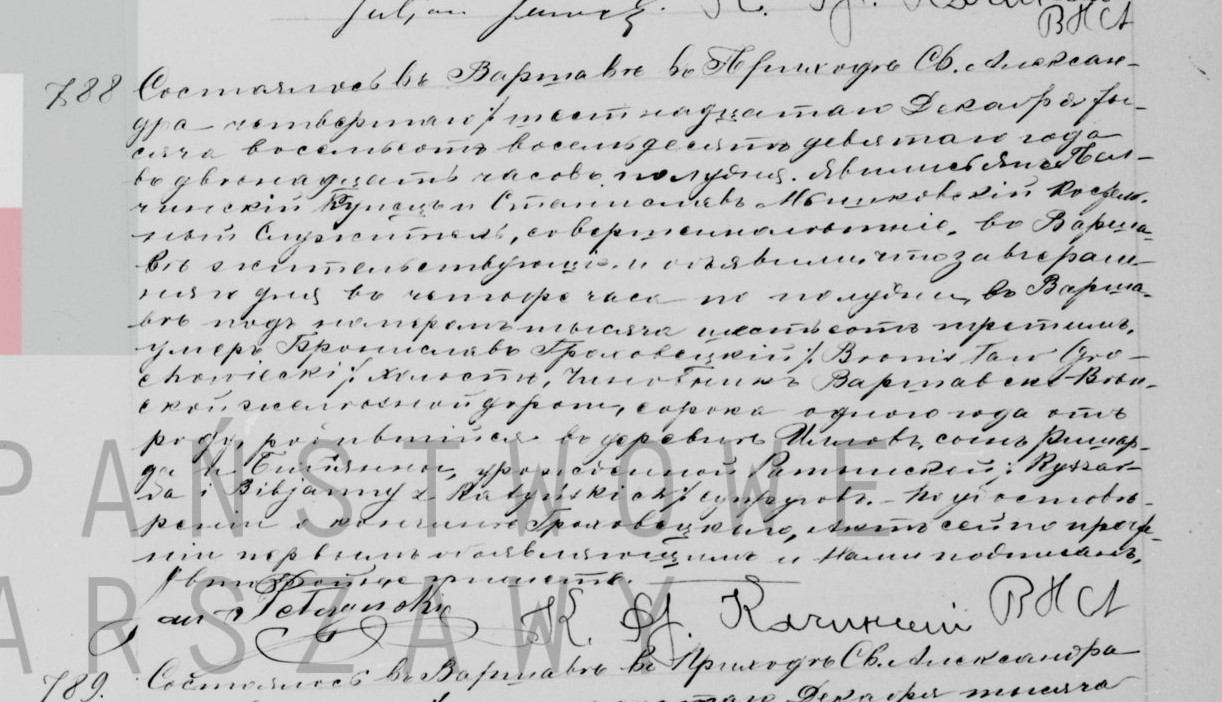 Juljan
ВНСА
788 Состоялось въ Варшавѣ въ Приходѣ Св. Алексан-
дра четвертаго /шестнадцатаго Декабря ты-
сяча восемьсотъ восемьдесятъ девятаго года
въ двѣнадцать часовъ полудня. Явились Янъ
чинскій Купецъ и Станиславъ Мышковскій Костель-
ный Служитель, совершеннолѣтніе, въ Варша-
вѣ жительствующіе и объявили, что завчераш-
няго дня въ четыре часа по полудни, въ Варша-
вѣ подъ номеромъ тысяча шестьсотъ третьимъ,
умеръ Брониславъ Гроховецкій /: Bronisław Gro-
chowiecki :/ холостъ, Чиновникъ Варшавско-Вѣн-
ской желѣзной дороги, сорока одного года отъ
роду, родившійся въ деревнѣ Иловъ, сынъ Ришар-
да и Бибіянны, урожденной Ратынской /: Ryszar-
da i Bibjanny z Ratyńskich :/ супруговъ. По удостовѣ-
реніи о кончинѣ Гроховецкаго, Актъ сей по прочте-
ніи первымъ объявляющимъ и Нами подписанъ,
второй неграмотенъ.
К. Качинскій ВНСА
789. Состоялось въ Варшавѣ въ Приходѣ Св. Александра
Декабря тысяча
PAŃSTWOWE
ARSZAWY